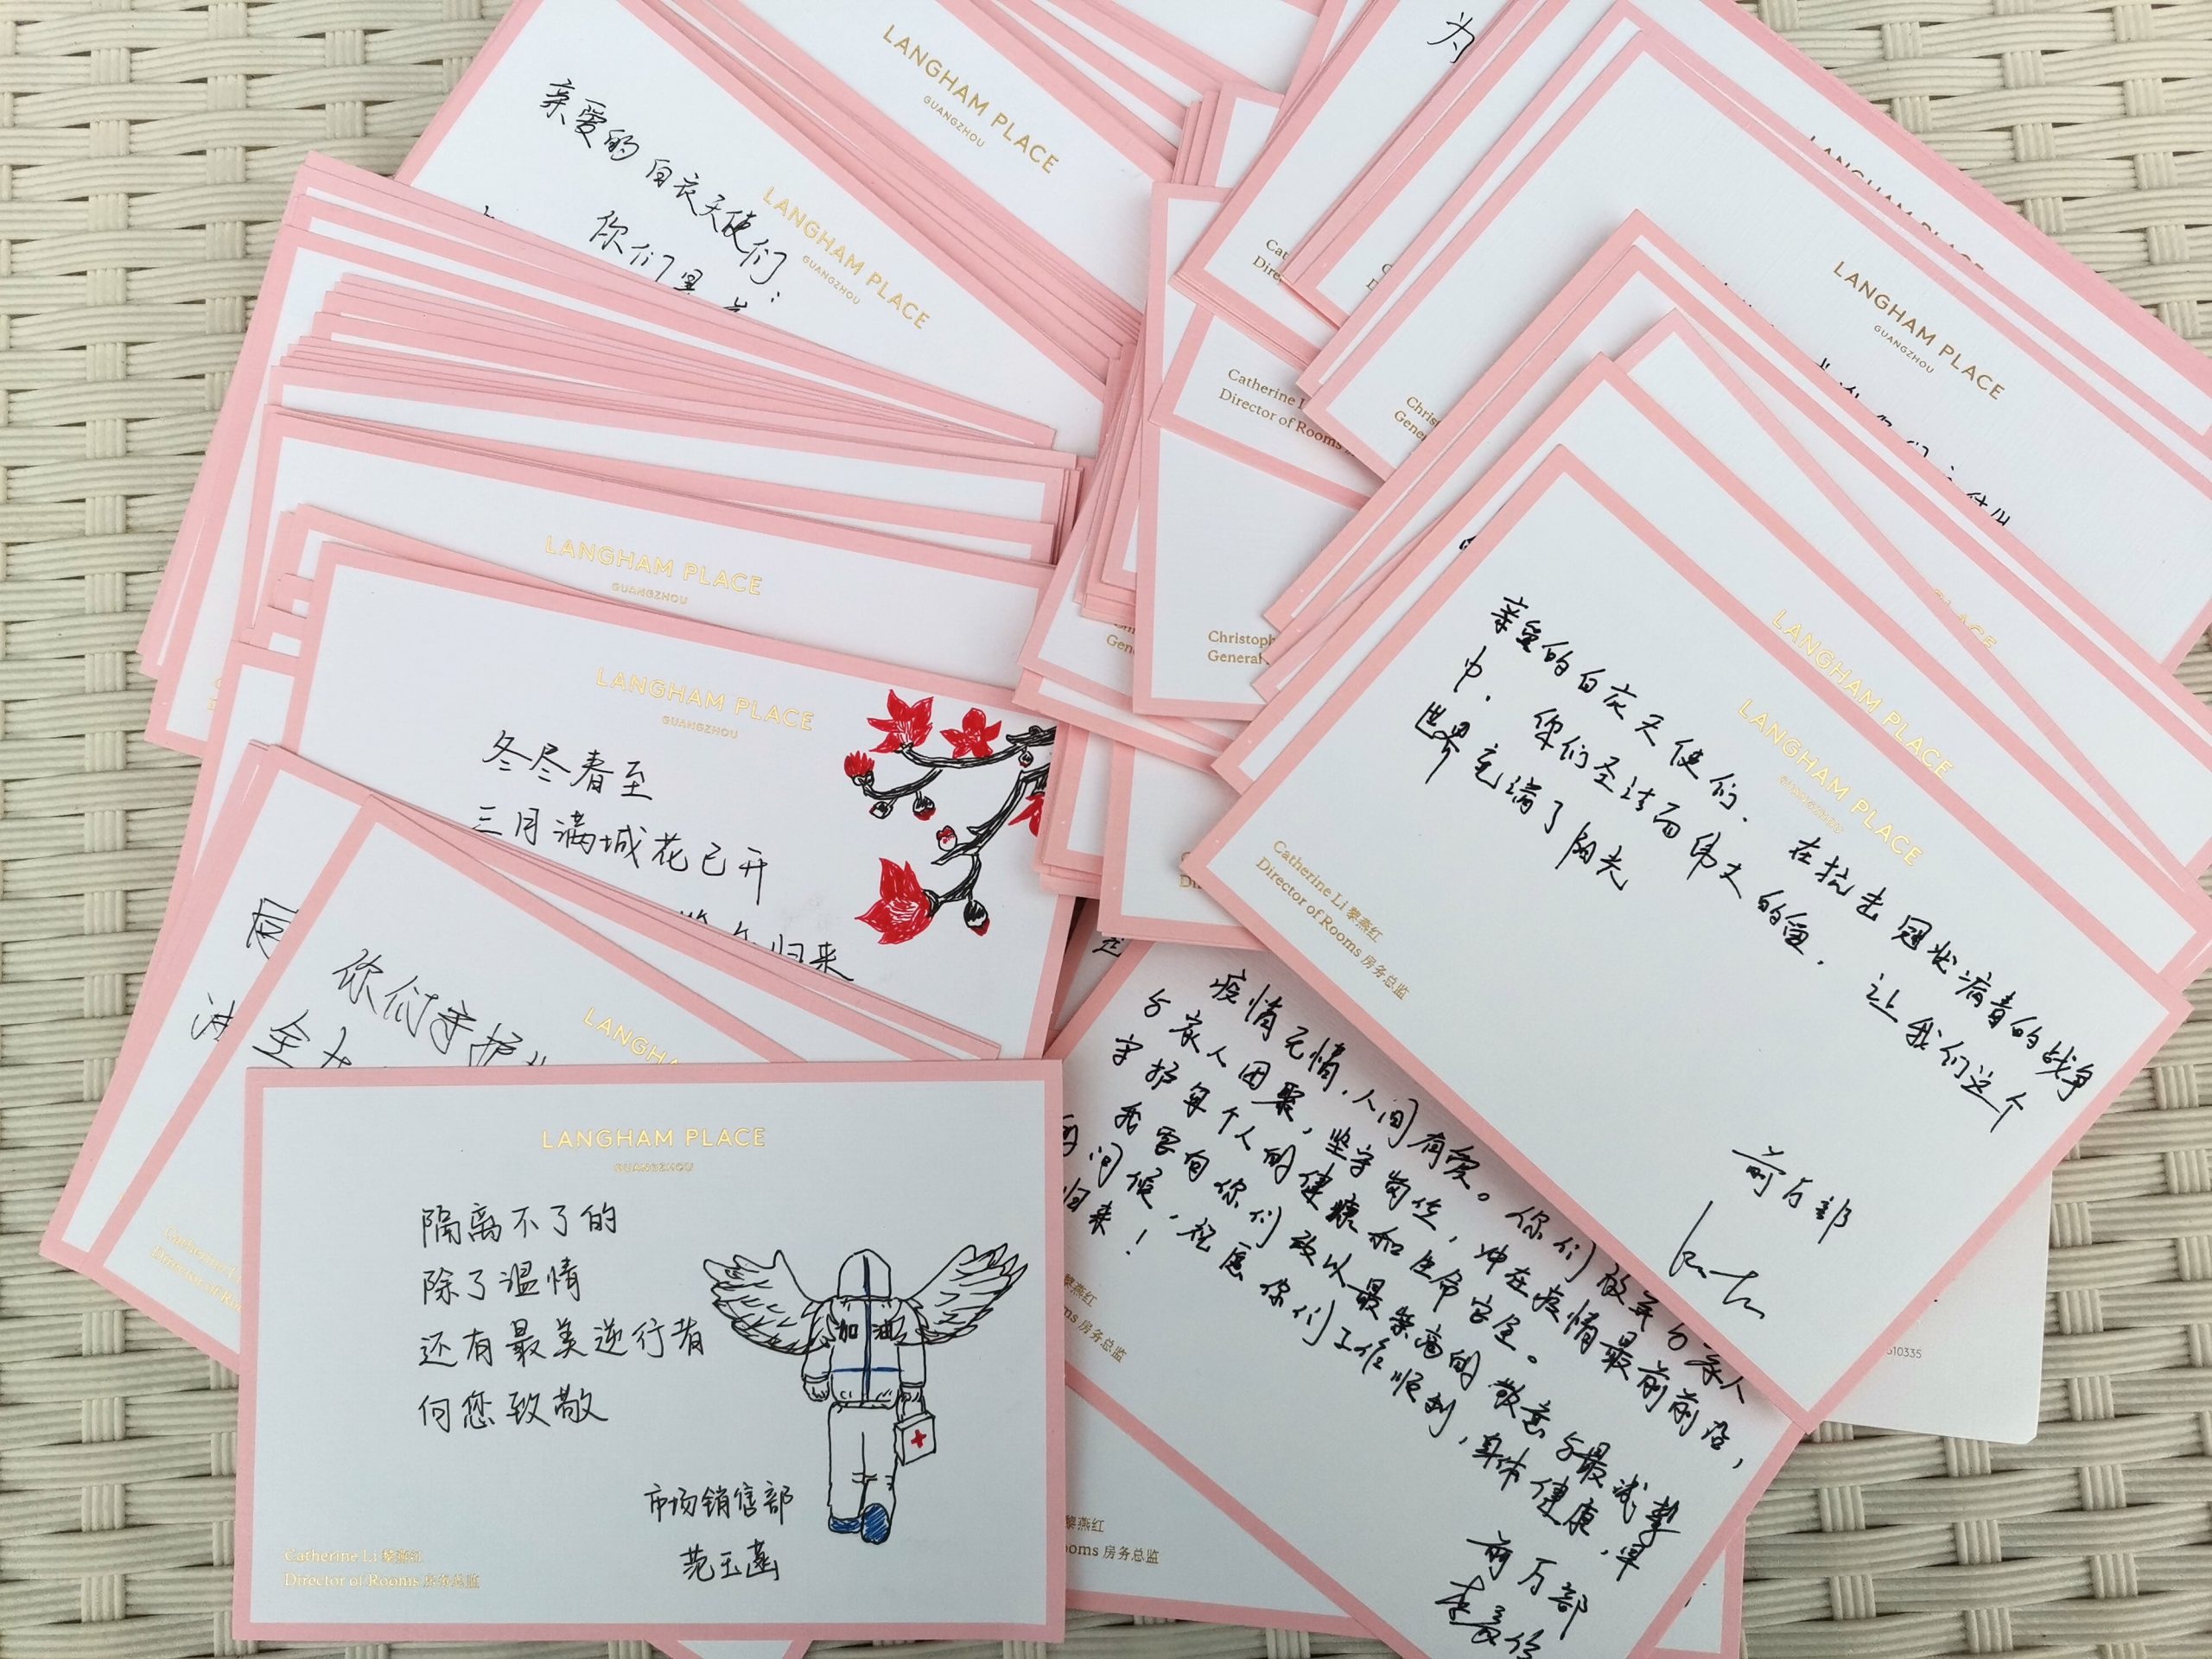 LANGHAM PLACE
GUANGZHOU
亲爱的白衣天使们:
你们是
LANGHAM PLACE
GUANGZHOU
为
LANGHAM PLACE
GUANGZHOU
Catherine
Director of Rooms
Christoph
General
LANGHAM PLACE
GUANGZHOU
LANGHAM PLACE
GUANGZHOU
冬尽春至
三月满城花已开
归来
你们守护
LANGHA
LANGHAM PLACE
GUANGZHOU
隔离不了的
除了温情
还有最美逆行者
向您致敬
加油
市场销售部
范玉菡
Catherine Li 黎燕红
Director of Rooms 房务总监
LANGHAM PLACE
LANGHAM PLACE
GUANGZHOU
亲爱的白衣天使们. 在抗击冠状病毒的战争
中. 你们圣洁而伟大的
让我们这个
世界充满了阳光
前厅部
Catherine Li 黎燕红
Director of Rooms 房务总监
疫情无情,人间有爱。你们放弃与亲人
与家人团聚,坚守岗位,冲在疫情最前沿,
守护每个人的健康和生命安全。
我要向你们致以最崇高的敬意与最诚挚
问候,祝愿你们工作顺利,身体健康,早
归来!
前厅部
黎燕红
oms 房务总监
黎燕红
ooms 房务总监
510335